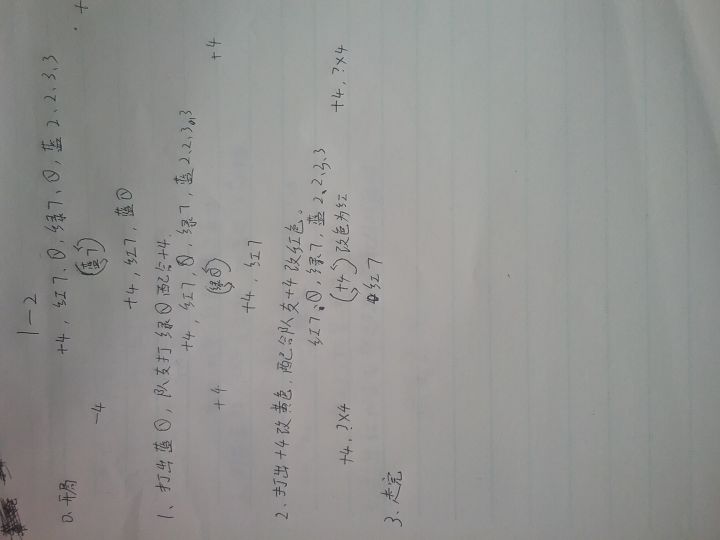 1-2
0、开局
+4, 红7、⓪, 绿7、⓪, 蓝2、2、3、3
-4 (蓝7)
+4, 红7, 蓝⓪
1、打出蓝⓪, 队友打绿⓪配合+4.
+4, 红7, ⓪, 绿7, 蓝2、2、3、3
+4 (绿⓪) +4
+4, 红7
2、打出+4改黄色, 配合队友+4改红色。
红7、⓪, 绿7, 蓝2、2、3、3
+4, ?×4 (+4) 改色为红 +4, ?×4
红7
3、走完